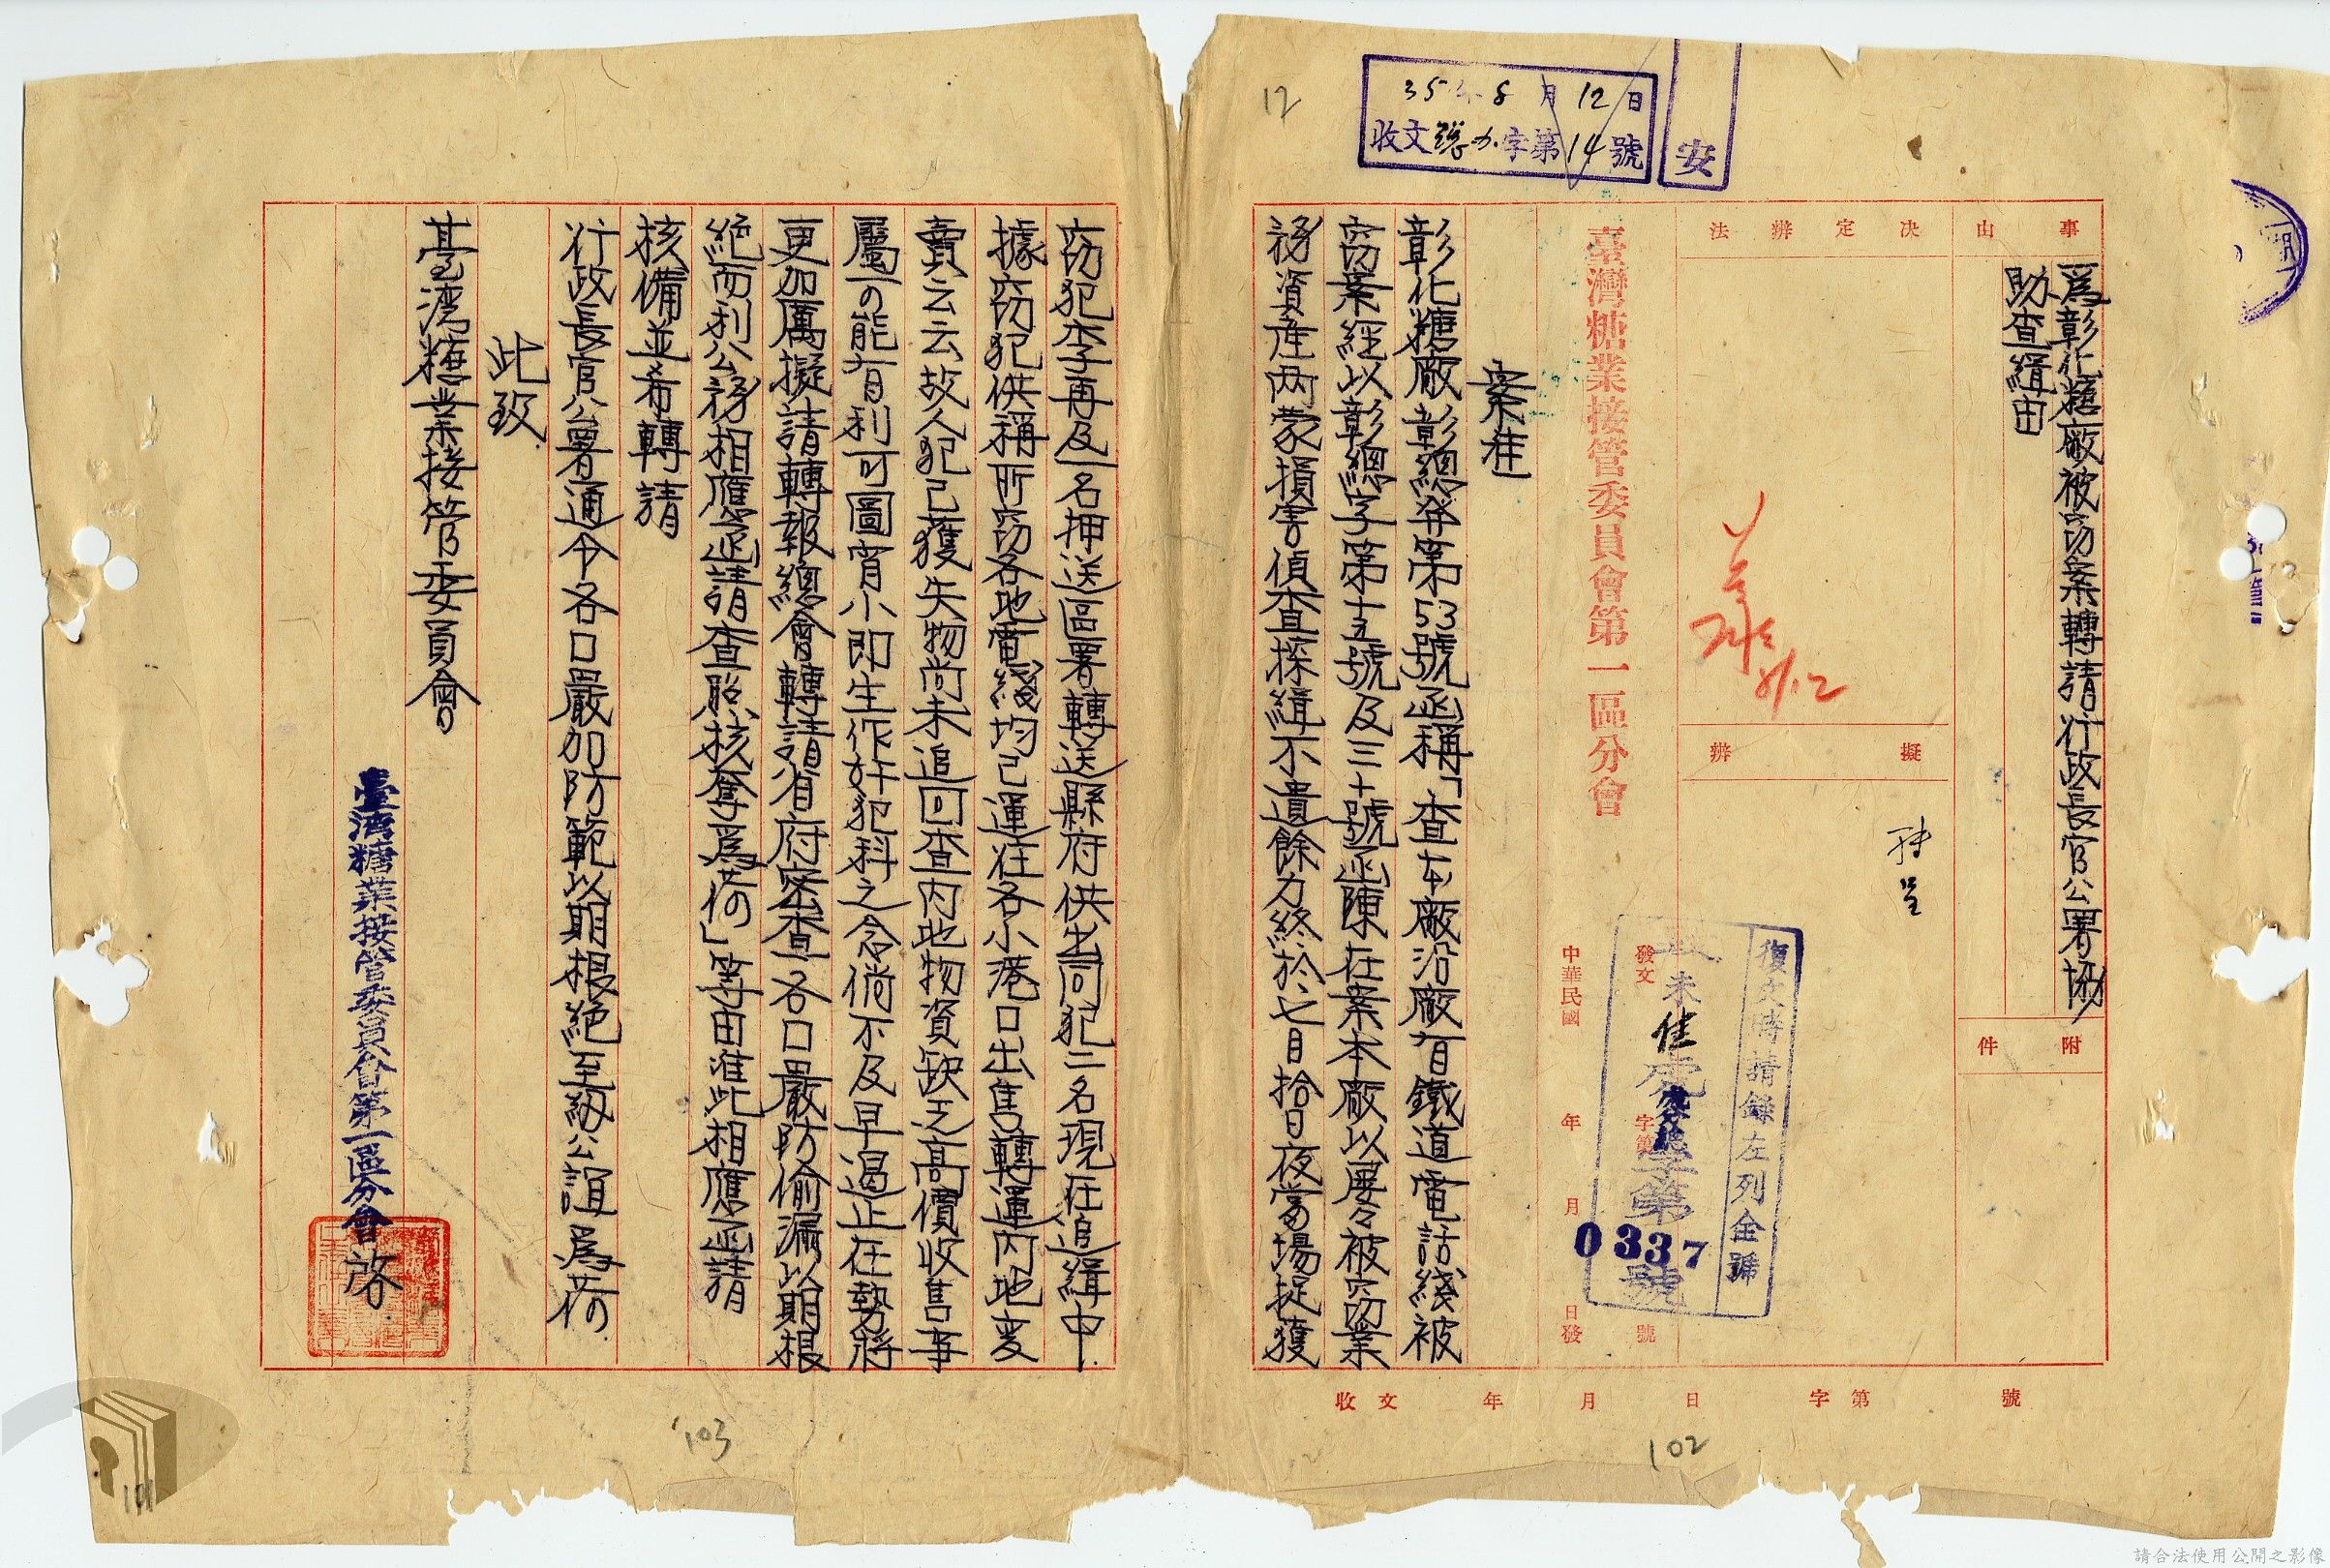 12
35年8月12日
收文 字第14號
安
事由
為彰化糖廠被窃案轉請行政長官公署協
助查緝由
附件
決定辦法
8/12
擬辦
臺灣糖業接管委員會第一區分會
發文 字第 號
中華民國 年 月 日發
復文時請錄左列全號
0337
案准
彰化糖廠彰總發第53號函稱「查本廠沿廠有鐵道電話綫被
窃業經以彰總字第十五號及三十號函陳在案本廠以屢々被窃業
務資產兩蒙損害偵查採緝不遺餘力終於七月拾日夜當場捉獲
收文 年 月 日 字第 號
102
窃犯李再及一名押送區署轉送縣府供出同犯二名現在追緝中
據窃犯供稱所窃各地電綫均已運往各小港口出售轉運内地変
賣云云故人犯已獲失物尚未追回查内地物資缺乏高價收售事
屬可能有利可圖宵小即生作奸犯科之念倘不及早遏止在勢將
更加厲擬請轉報總會轉請省府密查各口嚴防偷漏以期根
絕而利公務相應函請查照核奪爲荷」等由准此相應函請
核備並希轉請
行政長官公署通令各口嚴加防範以期根絕至紉公誼爲荷
此致
臺湾糖業接管委員會
臺湾糖業接管委員會第一區分會 啓
103
101
請合法使用公開之影像